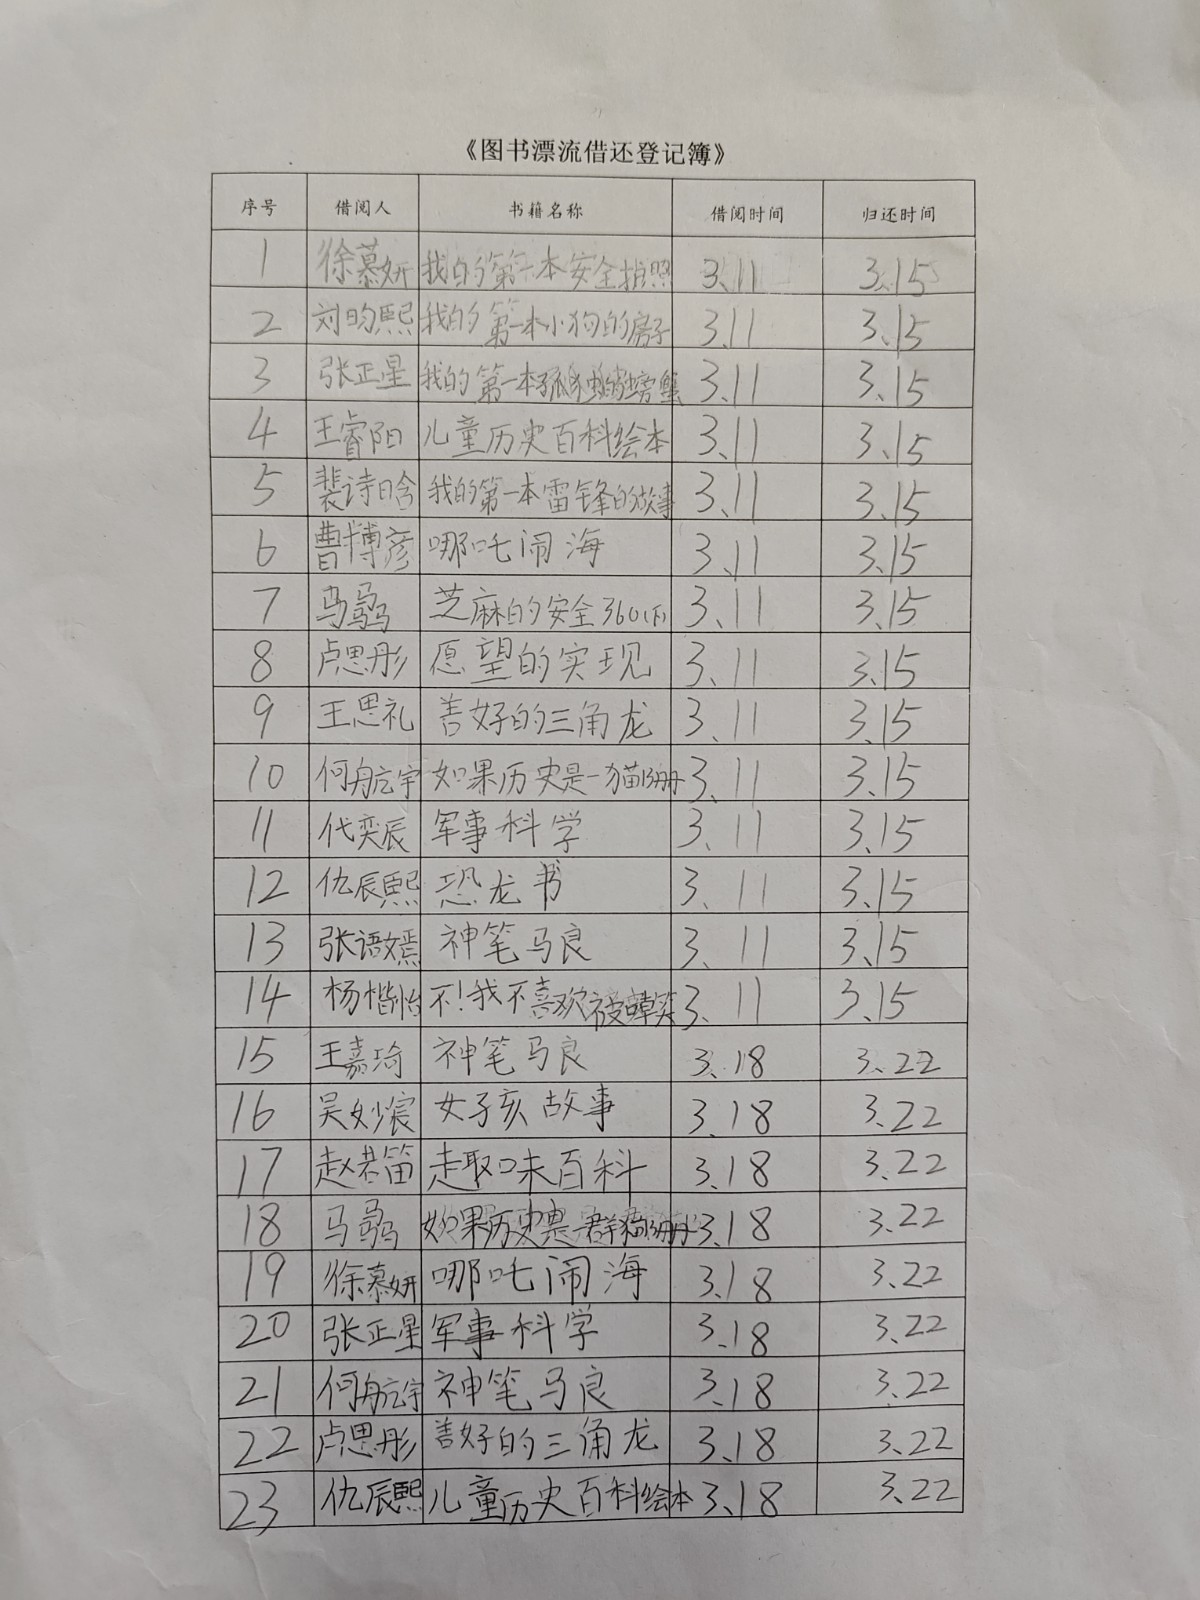 《图书漂流借还登记簿》
序号 借阅人 书籍名称 借阅时间 归还时间
1 徐慕妍 我的第一本安全护照 3.11 3.15
2 刘昀熙 我的第一本小狗的房子 3.11 3.15
3 张正星 我的第一本孤独的螃蟹 3.11 3.15
4 王睿阳 儿童历史百科绘本 3.11 3.15
5 裴诗晗 我的第一本雷锋的故事 3.11 3.15
6 曹博彦 哪吒闹海 3.11 3.15
7 马骉 芝麻的安全360 3.11 3.15
8 卢思彤 愿望的实现 3.11 3.15
9 王思礼 善好的三角龙 3.11 3.15
10 何航宇 如果历史是一猫13册 3.11 3.15
11 代奕辰 军事科学 3.11 3.15
12 仇辰熙 恐龙书 3.11 3.15
13 张语嫣 神笔马良 3.11 3.15
14 杨楷怡 不!我不喜欢被 3.11 3.15
15 王嘉琦 神笔马良 3.18 3.22
16 吴妙宸 女子孩故事 3.18 3.22
17 赵君笛 走取味百科 3.18 3.22
18 马骉 如果历史是一群猫13册 3.18 3.22
19 徐慕妍 哪吒闹海 3.18 3.22
20 张正星 军事科学 3.18 3.22
21 何航宇 神笔马良 3.18 3.22
22 卢思彤 善好的三角龙 3.18 3.22
23 仇辰熙 儿童历史百科绘本 3.18 3.22